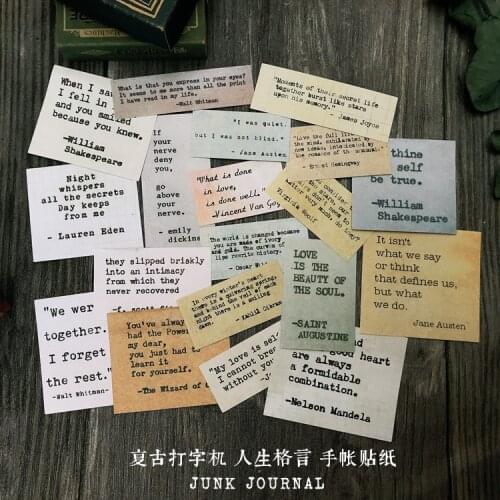 When I sa
I fell in
and you smiled
because you knew.
-William
Shakespeare
What is that you express in your eyes?
It seems to me more than all the print
I have read in my life.
-Walt Whitman
"Moments of their secret life
together burst like stars
upon his memory."
- James Joyce
"I was quiet,
but I was not blind."
- Jane Austen
- Ernest Hemingway
thine
self
be true.
-William
Shakespeare
If
your
nerve
deny
you,
go
above
your
nerve.
- emily
dickins
Night
whispers
all the secrets
Day keeps
from me
- Lauren Eden
"What is done
in love,
is done well."
-Vincent Van Gog
Virginia Woolf
It isn't
what we say
or think
that defines us,
but what
we do.
Jane Austen
The world is changed because
you are made of ivory
and gold. The curves of
lips rewrite history.
- Oscar Wil
they slipped briskly
into an intimacy
from which they
never recovered
LOVE
IS THE
BEAUTY OF
THE SOUL.
-SAINT
AUGUSTINE
"We wer
together.
I forget
the rest."
-Walt Whitman-
You've alway
had the Power
my dear,
you just had to
learn it
for yourself.
-The Wizard of
"My love is sel
I cannot brea
without yo
good heart
are always
a formidable
combination.
-Nelson Mandela
复古打字机 人生格言 手帐贴纸
JUNK JOURNAL